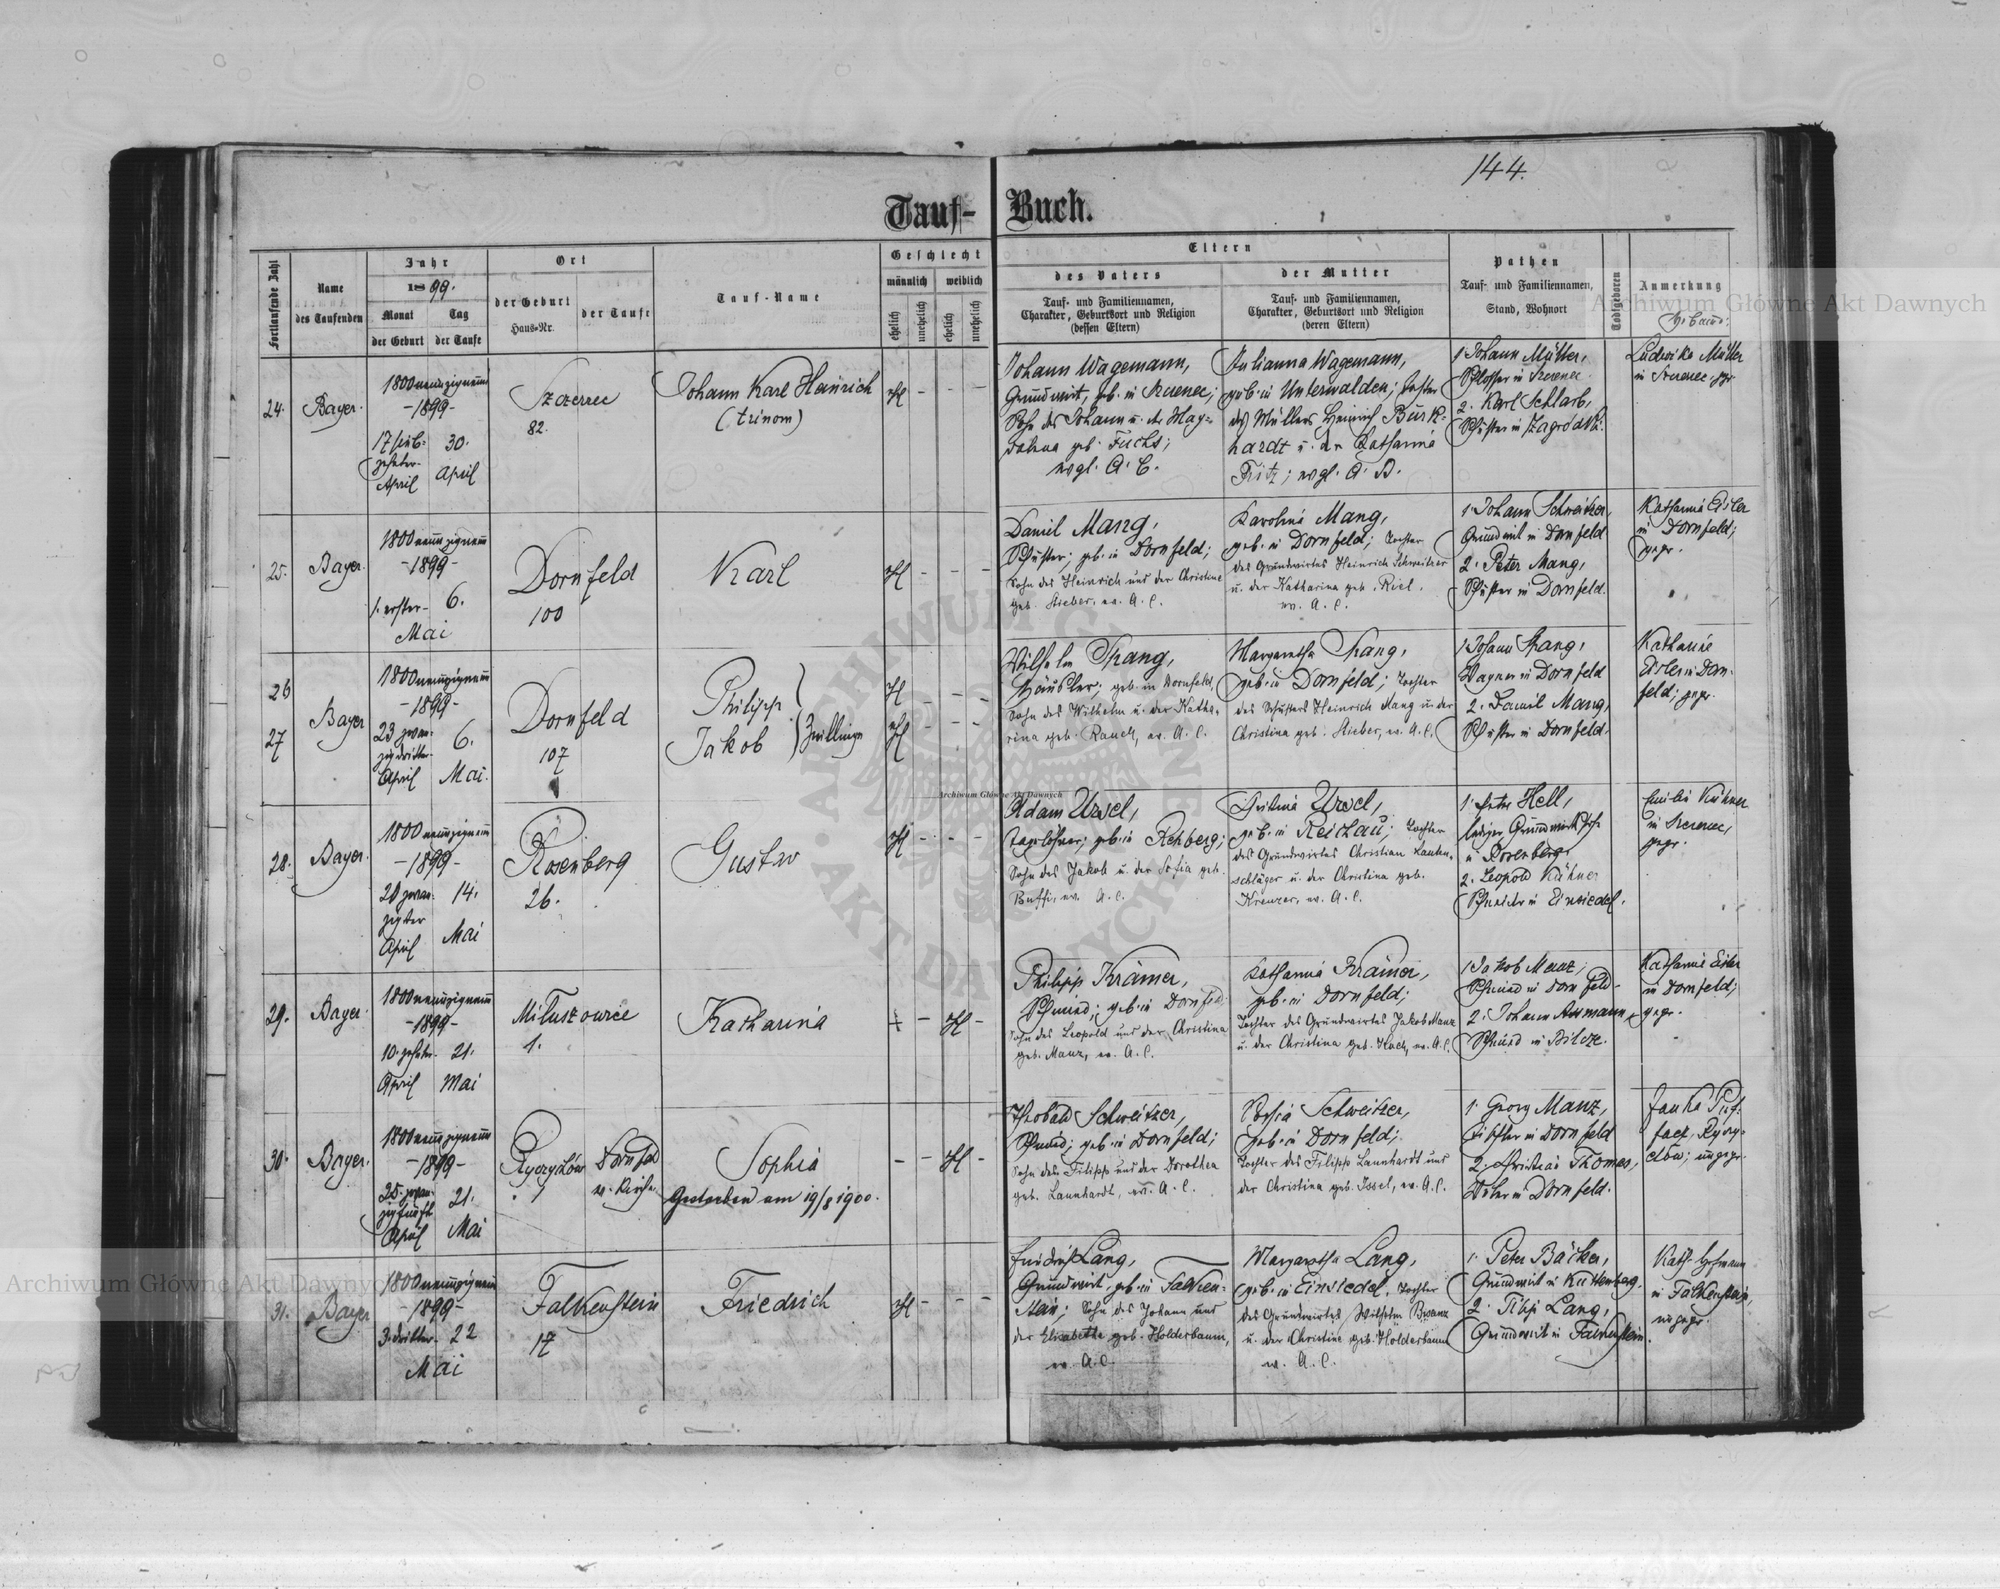 144.
Tauf-Buch.
Fortlaufende Zahl
Name
des Taufenden
Jahr
1899.
Monat
Tag
der Geburt
der Taufe
Ort
der Geburt
Haus-Nr.
der Taufe
Tauf-Name
Geschlecht
männlich
weiblich
ehelich
unehelich
ehelich
unehelich
Eltern
des Vaters
Tauf- und Familiennamen,
Charakter, Geburtsort und Religion
(dessen Eltern)
der Mutter
Tauf- und Familiennamen,
Charakter, Geburtsort und Religion
(deren Eltern)
Pathen
Tauf- und Familiennamen,
Stand, Wohnort
Todtgeboren
Anmerkung
Archiwum Główne Akt Dawnych
24.
Bayer.
1800neunzigneun
-1899-
17
April
30.
April
Szczerzec
82.
Johann Karl Heinrich
(trinom)
Johann Wagemann,
Grundwirt, geb. in Szczerzec;
Sohn des Johann u. der Mag-
dalena geb. Fuchs;
evgl. A. C.
Julianna Wagemann,
geb. in Unterwalden; Tochter
des Müllers Heinrich Burk-
hardt u. der Katharina
Fritz; evgl. A. B.
1. Johann Müller,
Schlosser in Szczerzec
2. Karl Schlarb,
Schuster in Zagrodki.
Ludwika Müller
in Szczerzec, gpr.
25.
Bayer.
1800neunzigneun
-1899-
1. erster-
Mai
6.
Dornfeld
100
Karl
Daniel Mang,
Schuster; geb. in Dornfeld;
Sohn des Heinrich und der Christine
geb. Stieber, ev. A. C.
Karolina Mang,
geb. in Dornfeld; Tochter
des Grundwirtes Heinrich Schweitzer
u. der Katharina geb. Riel.
ev. A. C.
1. Johann Schweitzer,
Grundwirt in Dornfeld
2. Peter Mang,
Schuster in Dornfeld.
Katharina Eisler
in Dornfeld;
gepr.
26
27
Bayer
1800neunzigneun
-1899-
23 zwan-
zigdritter-
April
6.
Mai.
Dornfeld
107
Philipp
Jakob
Zwillinge
Wilhelm Mang,
Häusler; geb. in Dornfeld,
Sohn des Wilhelm u. der Katha-
rina geb. Rauch, ev. A. C.
Margaretha Mang,
geb. in Dornfeld; Tochter
des Schusters Heinrich Mang u. der
Christina geb. Stieber, ev. A. C.
1. Johann Mang,
Wagner in Dornfeld
2. Daniel Mang,
Schuster in Dornfeld.
Katharine
Eisler in Dorn-
feld; gepr.
28.
Bayer.
1800neunzigneun
-1899-
20 zwan-
zigster
April
14.
Mai
Rosenberg
26.
Gustav
Adam Ursel,
Taglöhner; geb. in Rehberg;
Sohn des Jakob u. der Sofia geb.
Buffi, ev. A. C.
Christina Ursel,
geb. in Reichau; Tochter
des Grundwirtes Christian Lauten-
schläger u. der Christina geb.
Kreuzer, ev. A. C.
1. Peter Hell,
lediger Grundwirths
in Rosenberg.
2. Leopold Kühner
Schneider in Einsiedel.
Emilie Kühner
in Szczerzec,
gepr.
29.
Bayer.
1800neunzigneun
-1899-
10. zehnter
April
21.
Mai
Miłuszowice
1.
Katharina
Philipp Krämer,
Schmied; geb. in Dornfeld
Sohn des Leopold und der Christina
geb. Manz, ev. A. C.
Katharina Krämer,
geb. in Dornfeld;
Tochter des Grundwirtes Jakob Manz
u. der Christina geb. Koch, ev. A. C.
1. Jakob Manz,
Schmied in Dornfeld-
2. Johann Assmann,
Schmied in Bilcze.
Katharine Eisler
in Dornfeld;
gepr.
30.
Bayer.
1800neunzigneun
-1899-
25. zwan-
zigfünft
April
21.
Mai
Ryczychów
1
Dornfeld
in Kirche
Sophia
Gestorben am 19/8 1900.
Theobald Schweitzer,
Schmied; geb. in Dornfeld;
Sohn des Filipp und der Dorothea
geb. Lannhardt, ev. A. C.
Sophia Schweitzer,
geb. in Dornfeld;
Tochter des Filipp Lannhardt und
der Christina geb. Issel, ev. A. C.
1. Georg Manz,
Tischler in Dornfeld
2. Christian Thomas,
in Dornfeld.
31.
Bayer
1800neunzigneun
-1899-
3. dritter-
Mai
22
Falkenstein
17
Friedrich
Friedrich Lang,
Grundwirt, geb. in Falken-
stein; Sohn des Johann und
der Elisabetha geb. Holderbaum,
ev. A. C.
Margaretha Lang,
geb. in Einsiedel, Tochter
des Grundwirtes Wilhelm Bvanz
u. der Christine geb. Holderbaum
ev. A. C.
1. Peter Bäcker,
Grundwirt in Kuttenberg.
2. Filipp Lang,
Grundwirt in Falkenstein.
Kath. Hofmann
in Falkenstein,
ungepr.
Archiwum Główne Akt Dawnych
Archiwum Główne Akt Dawnych